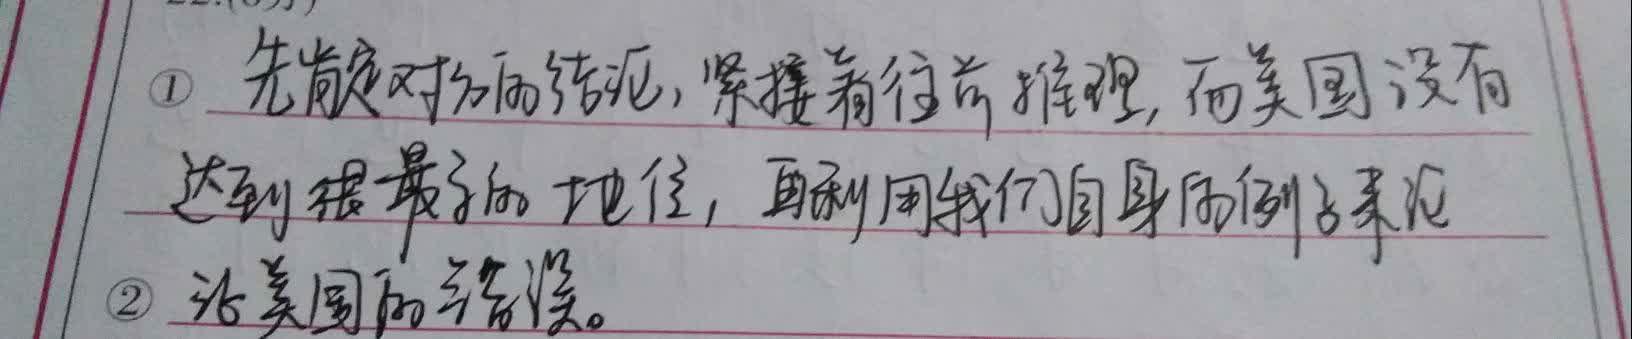 ① 先肯定对方的结论,紧接着往前推理,而美国没有
达到很最高的地位,再利用我们自身的例子来论
② 证美国的错误。